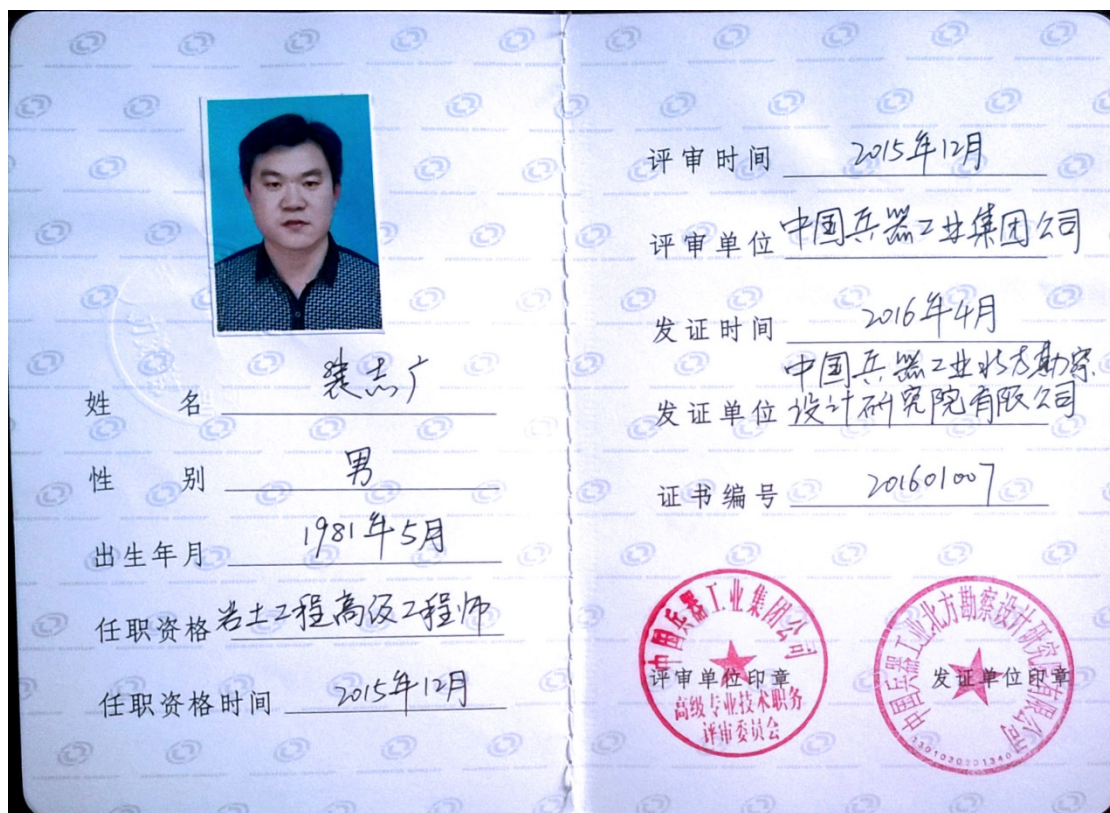 姓名 裴志广
性别 男
出生年月 1981年5月
任职资格 岩土工程高级工程师
任职资格时间 2015年12月
评审时间 2015年12月
评审单位 中国兵器工业集团公司
发证时间 2016年4月
中国兵器工业北方勘察
发证单位 设计研究院有限公司
证书编号 201601007
中国兵器工业集团公司
评审单位印章
高级专业技术职务
评审委员会
中国兵器工业北方勘察设计研究院有限公司
发证单位印章